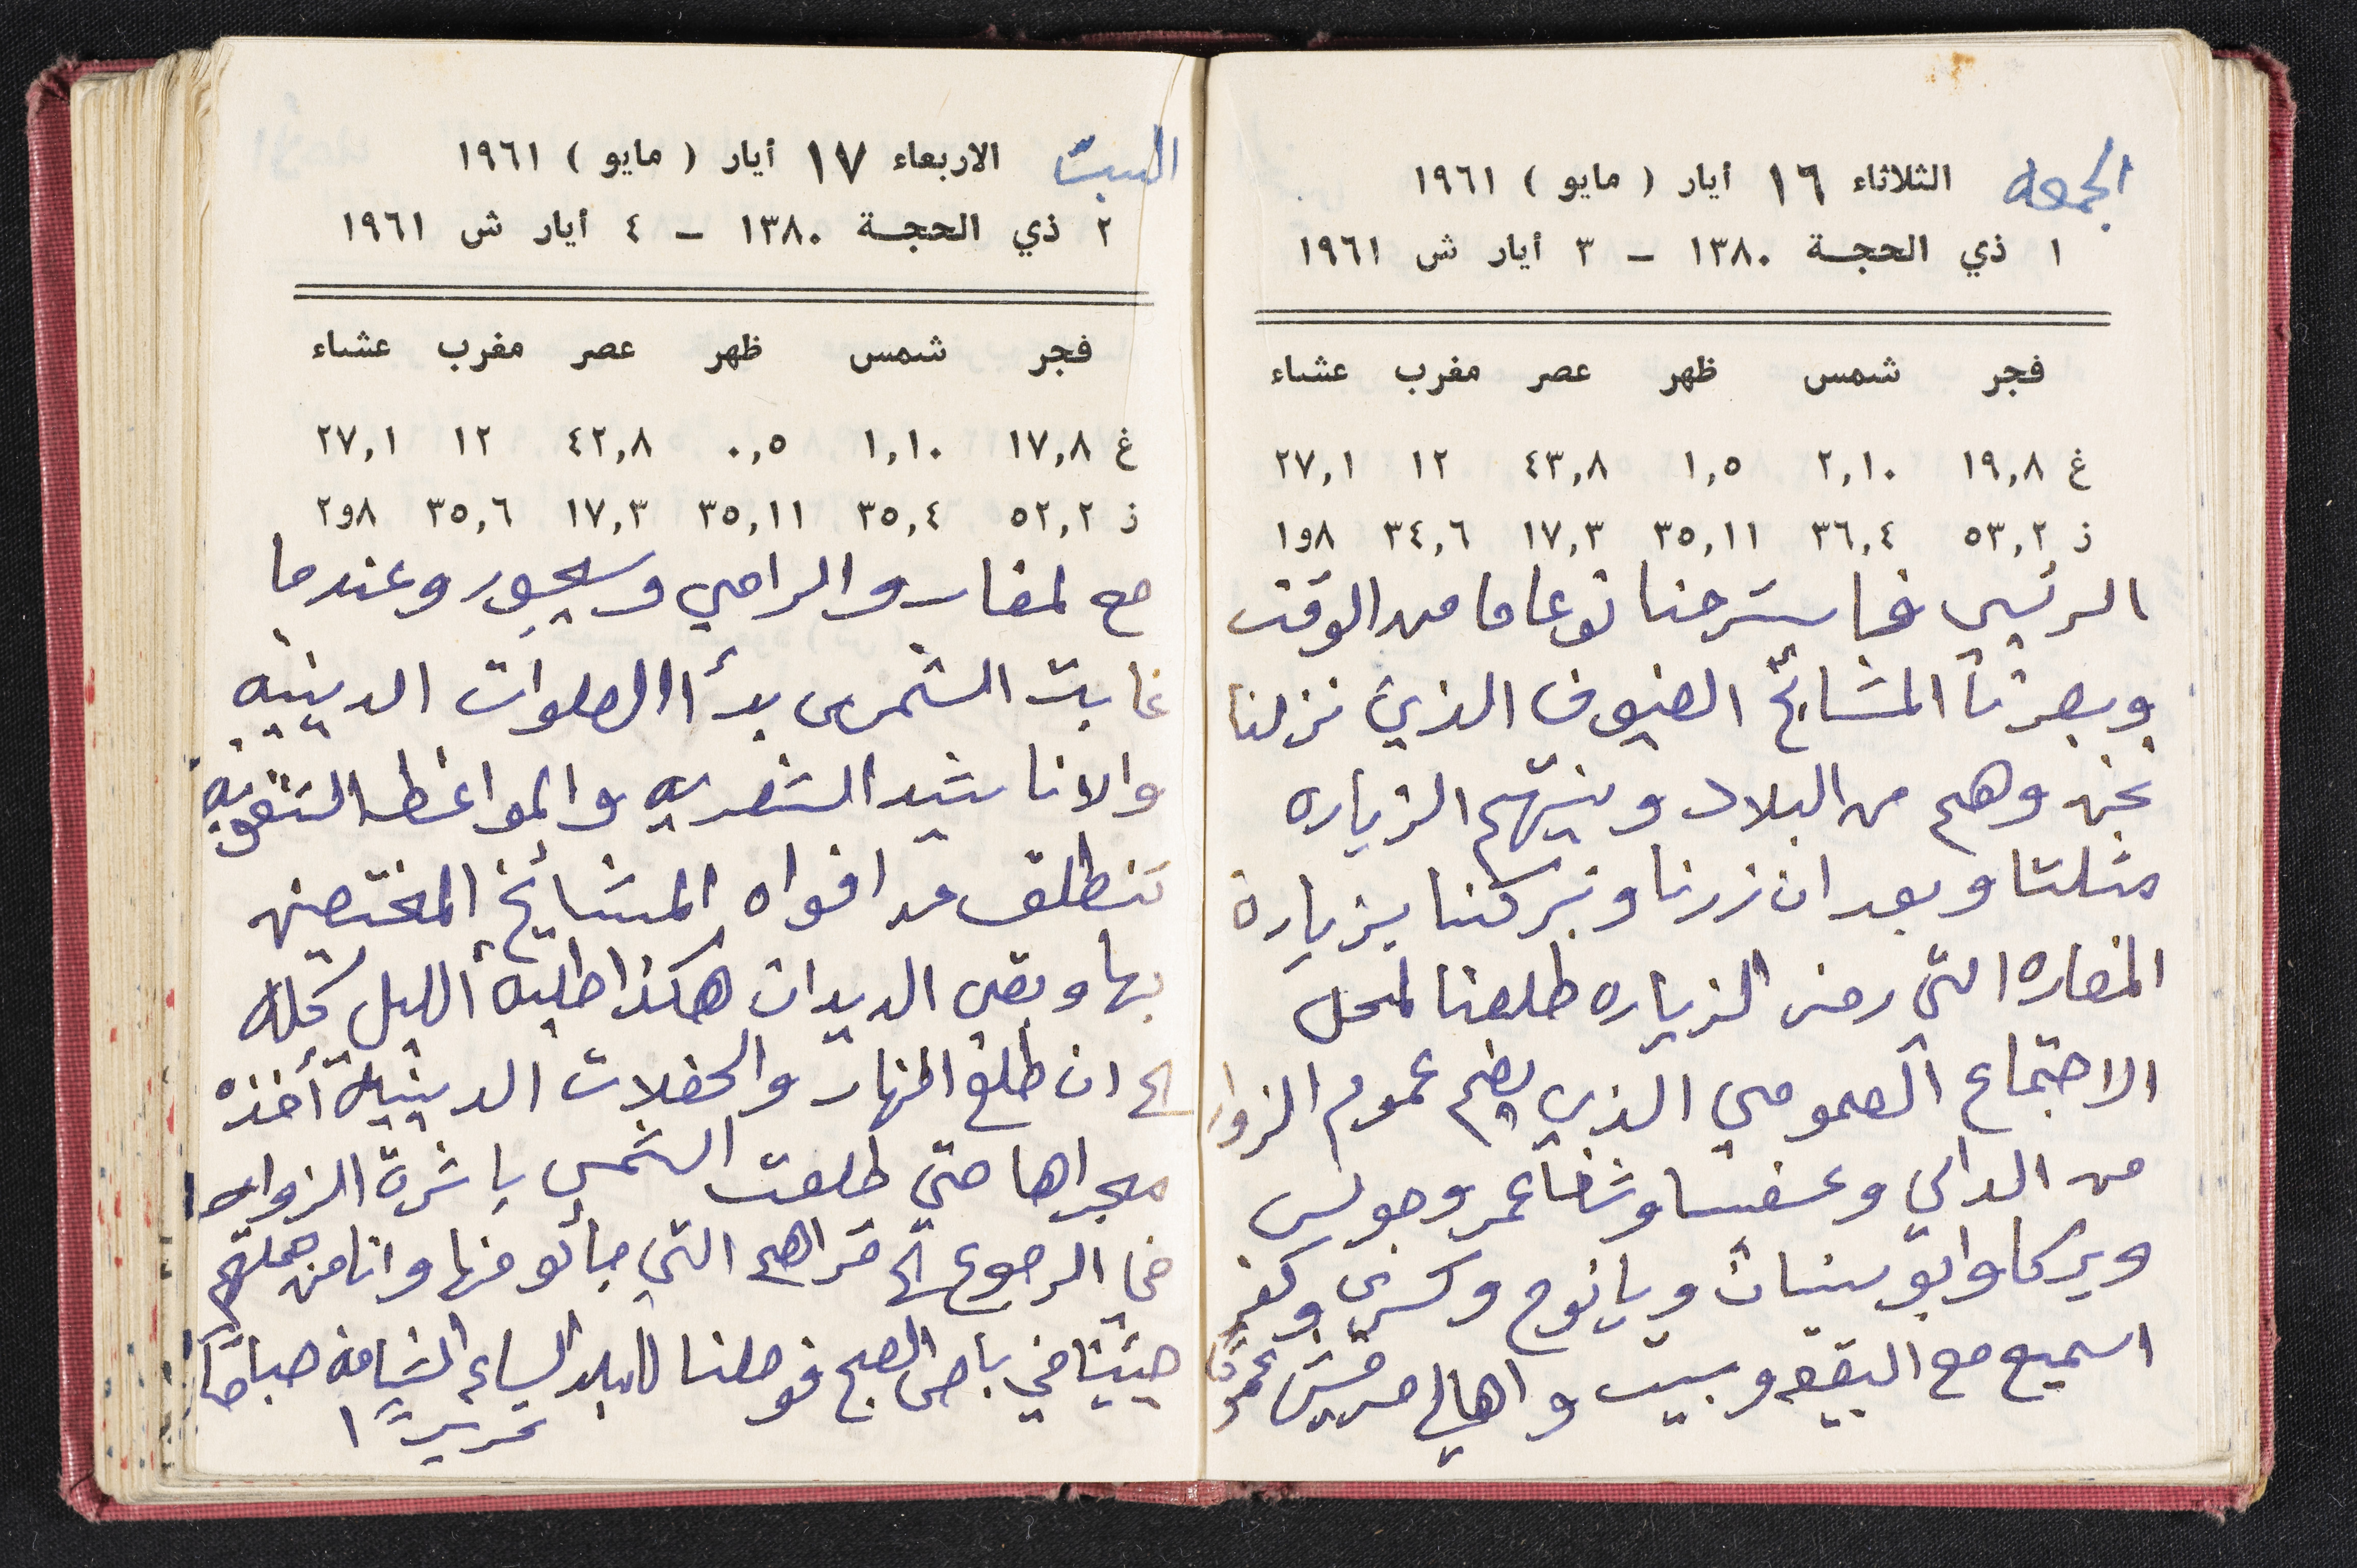 الجمعه
الثلاثاء ١٦ أيار ( مايو ) ١٩٦١
١ ذي الحجة ١٣٨٠ - ٣ أيار ش ١٩٦١
فجر شمس ظهر عصر مغرب عشاء
غ ١٩,٨ ٢,١٠ ١,٥ ٤٣,٨ ١٢ ٢٧,١
ز ٥٣,٢ ٣٦,٤ ٣٥,١١ ١٧,٣ ٣٤,٦ ٨و١
الرئيسي فاسترحنا نوعا ما من الوقت
وبصرنا المشائخ الضيوف الذين نزلنا
نحن وهم من البلاد ونيتهم الزياره
مثلنا وبعد ان زرنا وتبركنا بزيارة
المغاره التي رمز الزياره طلعنا لمحل
الاجتماع العمومي الذي يضم عموم الزوار
من الدالي وعسفيا وشفاعمر وجولس
ويركا وابو سنان ويانوح وكسرى وكفر
اسميع مع البقيعه وبيت واهالي حرفيش
السبت
الاربعاء ١٧ أيار ( مايو ) ١٩٦١
٢ ذي الحجة ١٣٨٠ - ٤ أيار ش ١٩٦١
فجر شمس ظهر عصر مغرب عشاء
غ ١٧,٨ ١,١٠ ٠,٥ ٤٢,٨ ١٢ ٢٧,١
ز ٥٢,٢ ٣٥,٤ ٣٥,١١ ١٧,٣ ٣٥,٦ ٨و٢
مع لمغار والرامي وسجور وعندما
غابت الشمس بدأ الصلوات الدينيه
والاناشيد الشعريه والمواعظ
تنطلق من افواه المشائخ المختصين
بها وبقي الديدان هكذا طيلة الليل كله
الى ان طلع النهار والحفلات الدينية أخذه
مجراها حتى طلعت الشمس باشرة الزوار
في الرجوع الى قراهم التي جأو منها وانا من جملتهم
جيئنا في باص الصبح فوصلنا للبلد الساعه الثامنه صباحًا
تقريبًا